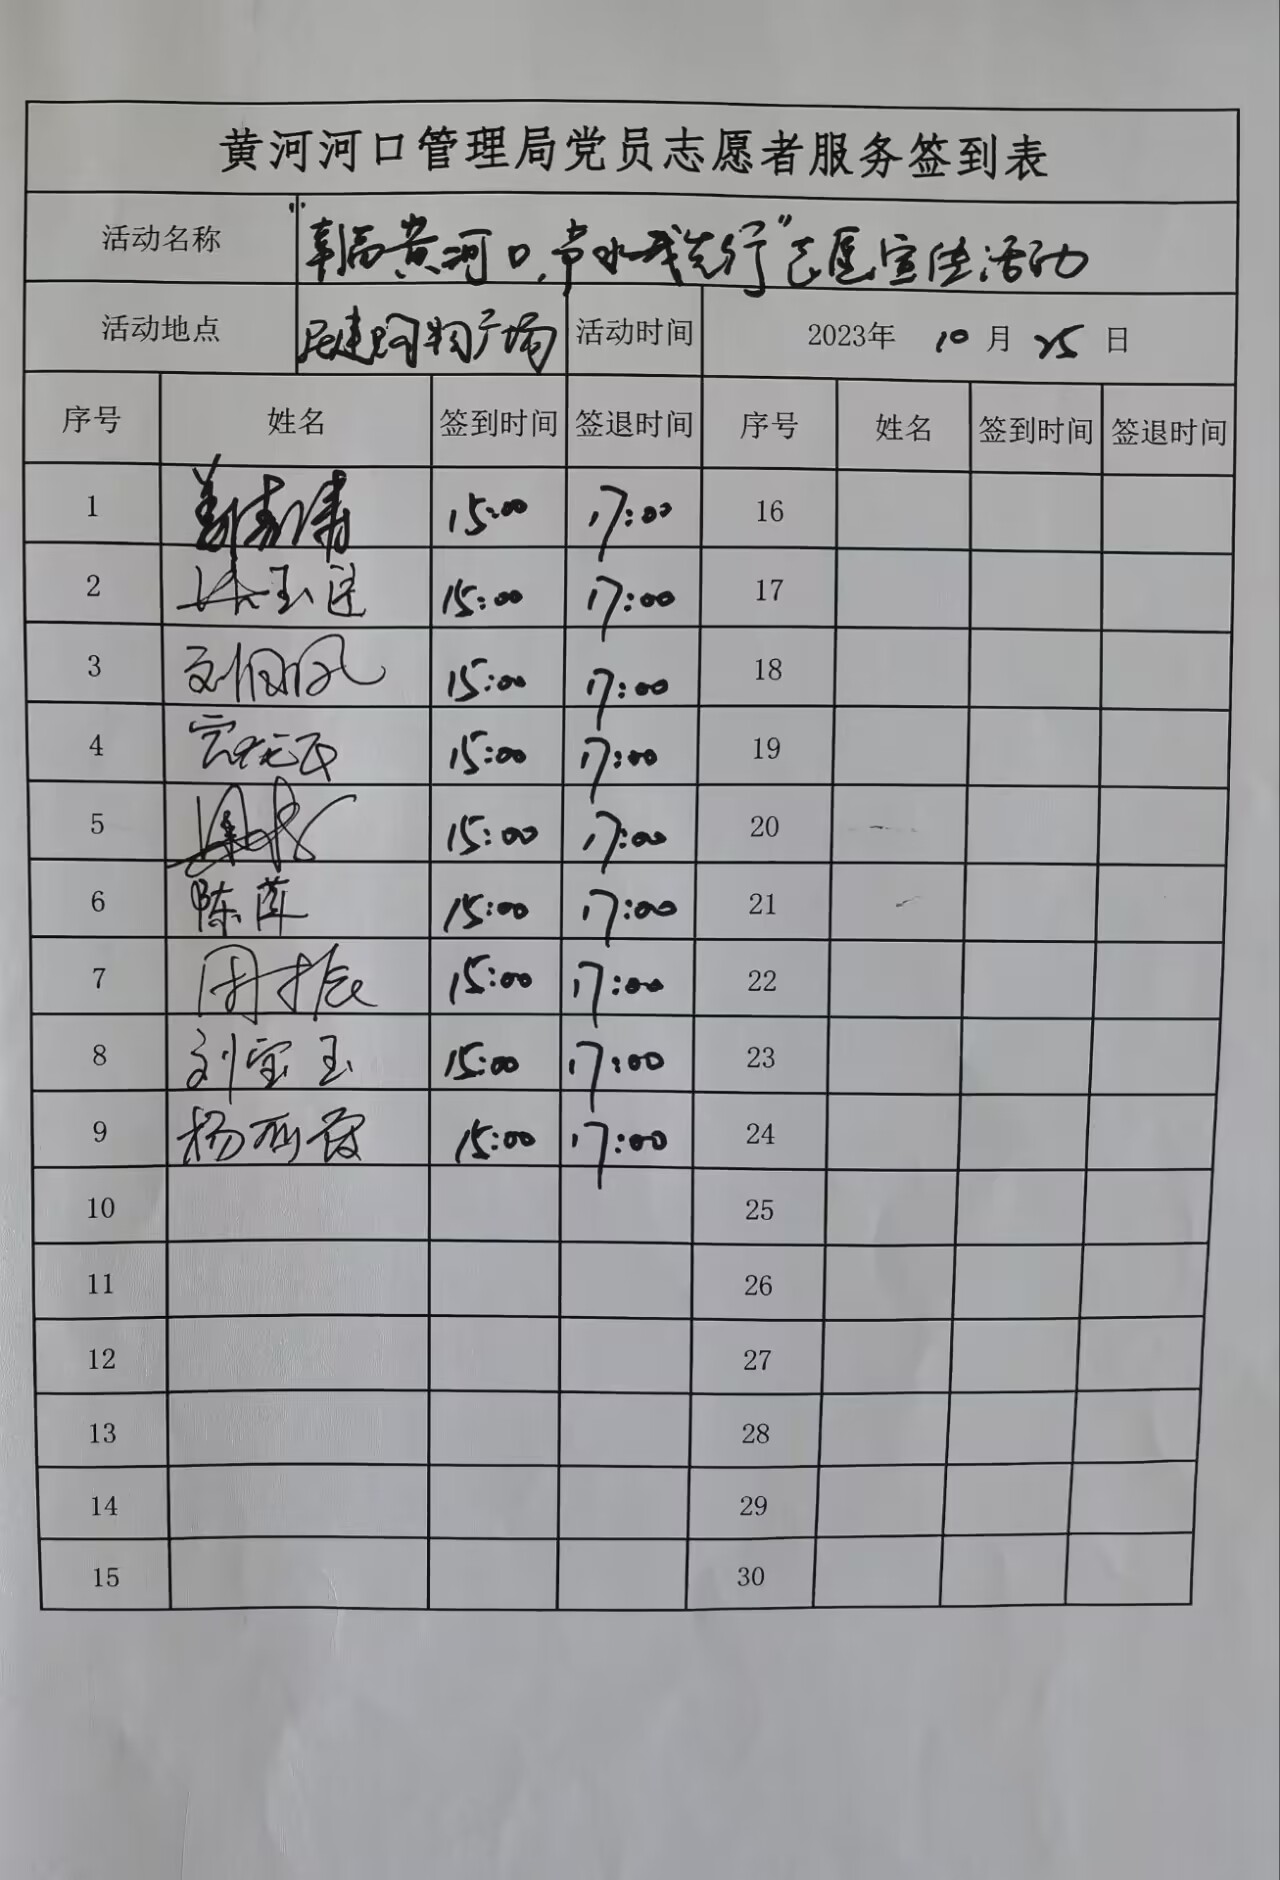 黄河河口管理局党员志愿者服务签到表
活动名称 "幸福黄河口,节水我先行"志愿宣传活动
活动地点 购物广场 活动时间 2023年 10 月 25 日
序号 姓名 签到时间 签退时间 序号 姓名 签到时间 签退时间
1 15:00 17:00 16
2 15:00 17:00 17
3 刘 15:00 17:00 18
4 15:00 17:00 19
5 15:00 17:00 20
6 陈萍 15:00 17:00 21
7 周振 15:00 17:00 22
8 刘宝玉 15:00 17:00 23
9 杨丽霞 15:00 17:00 24
10 25
11 26
12 27
13 28
14 29
15 30